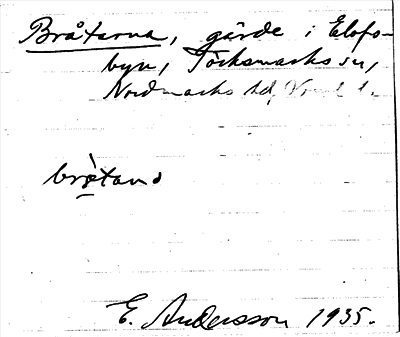 Bråtarna, gärde i Elofs-
byn, Töcksmarks sn,
Nordmarks hd, Vrml l.
bròtanɒ
E. Andersson 1935.